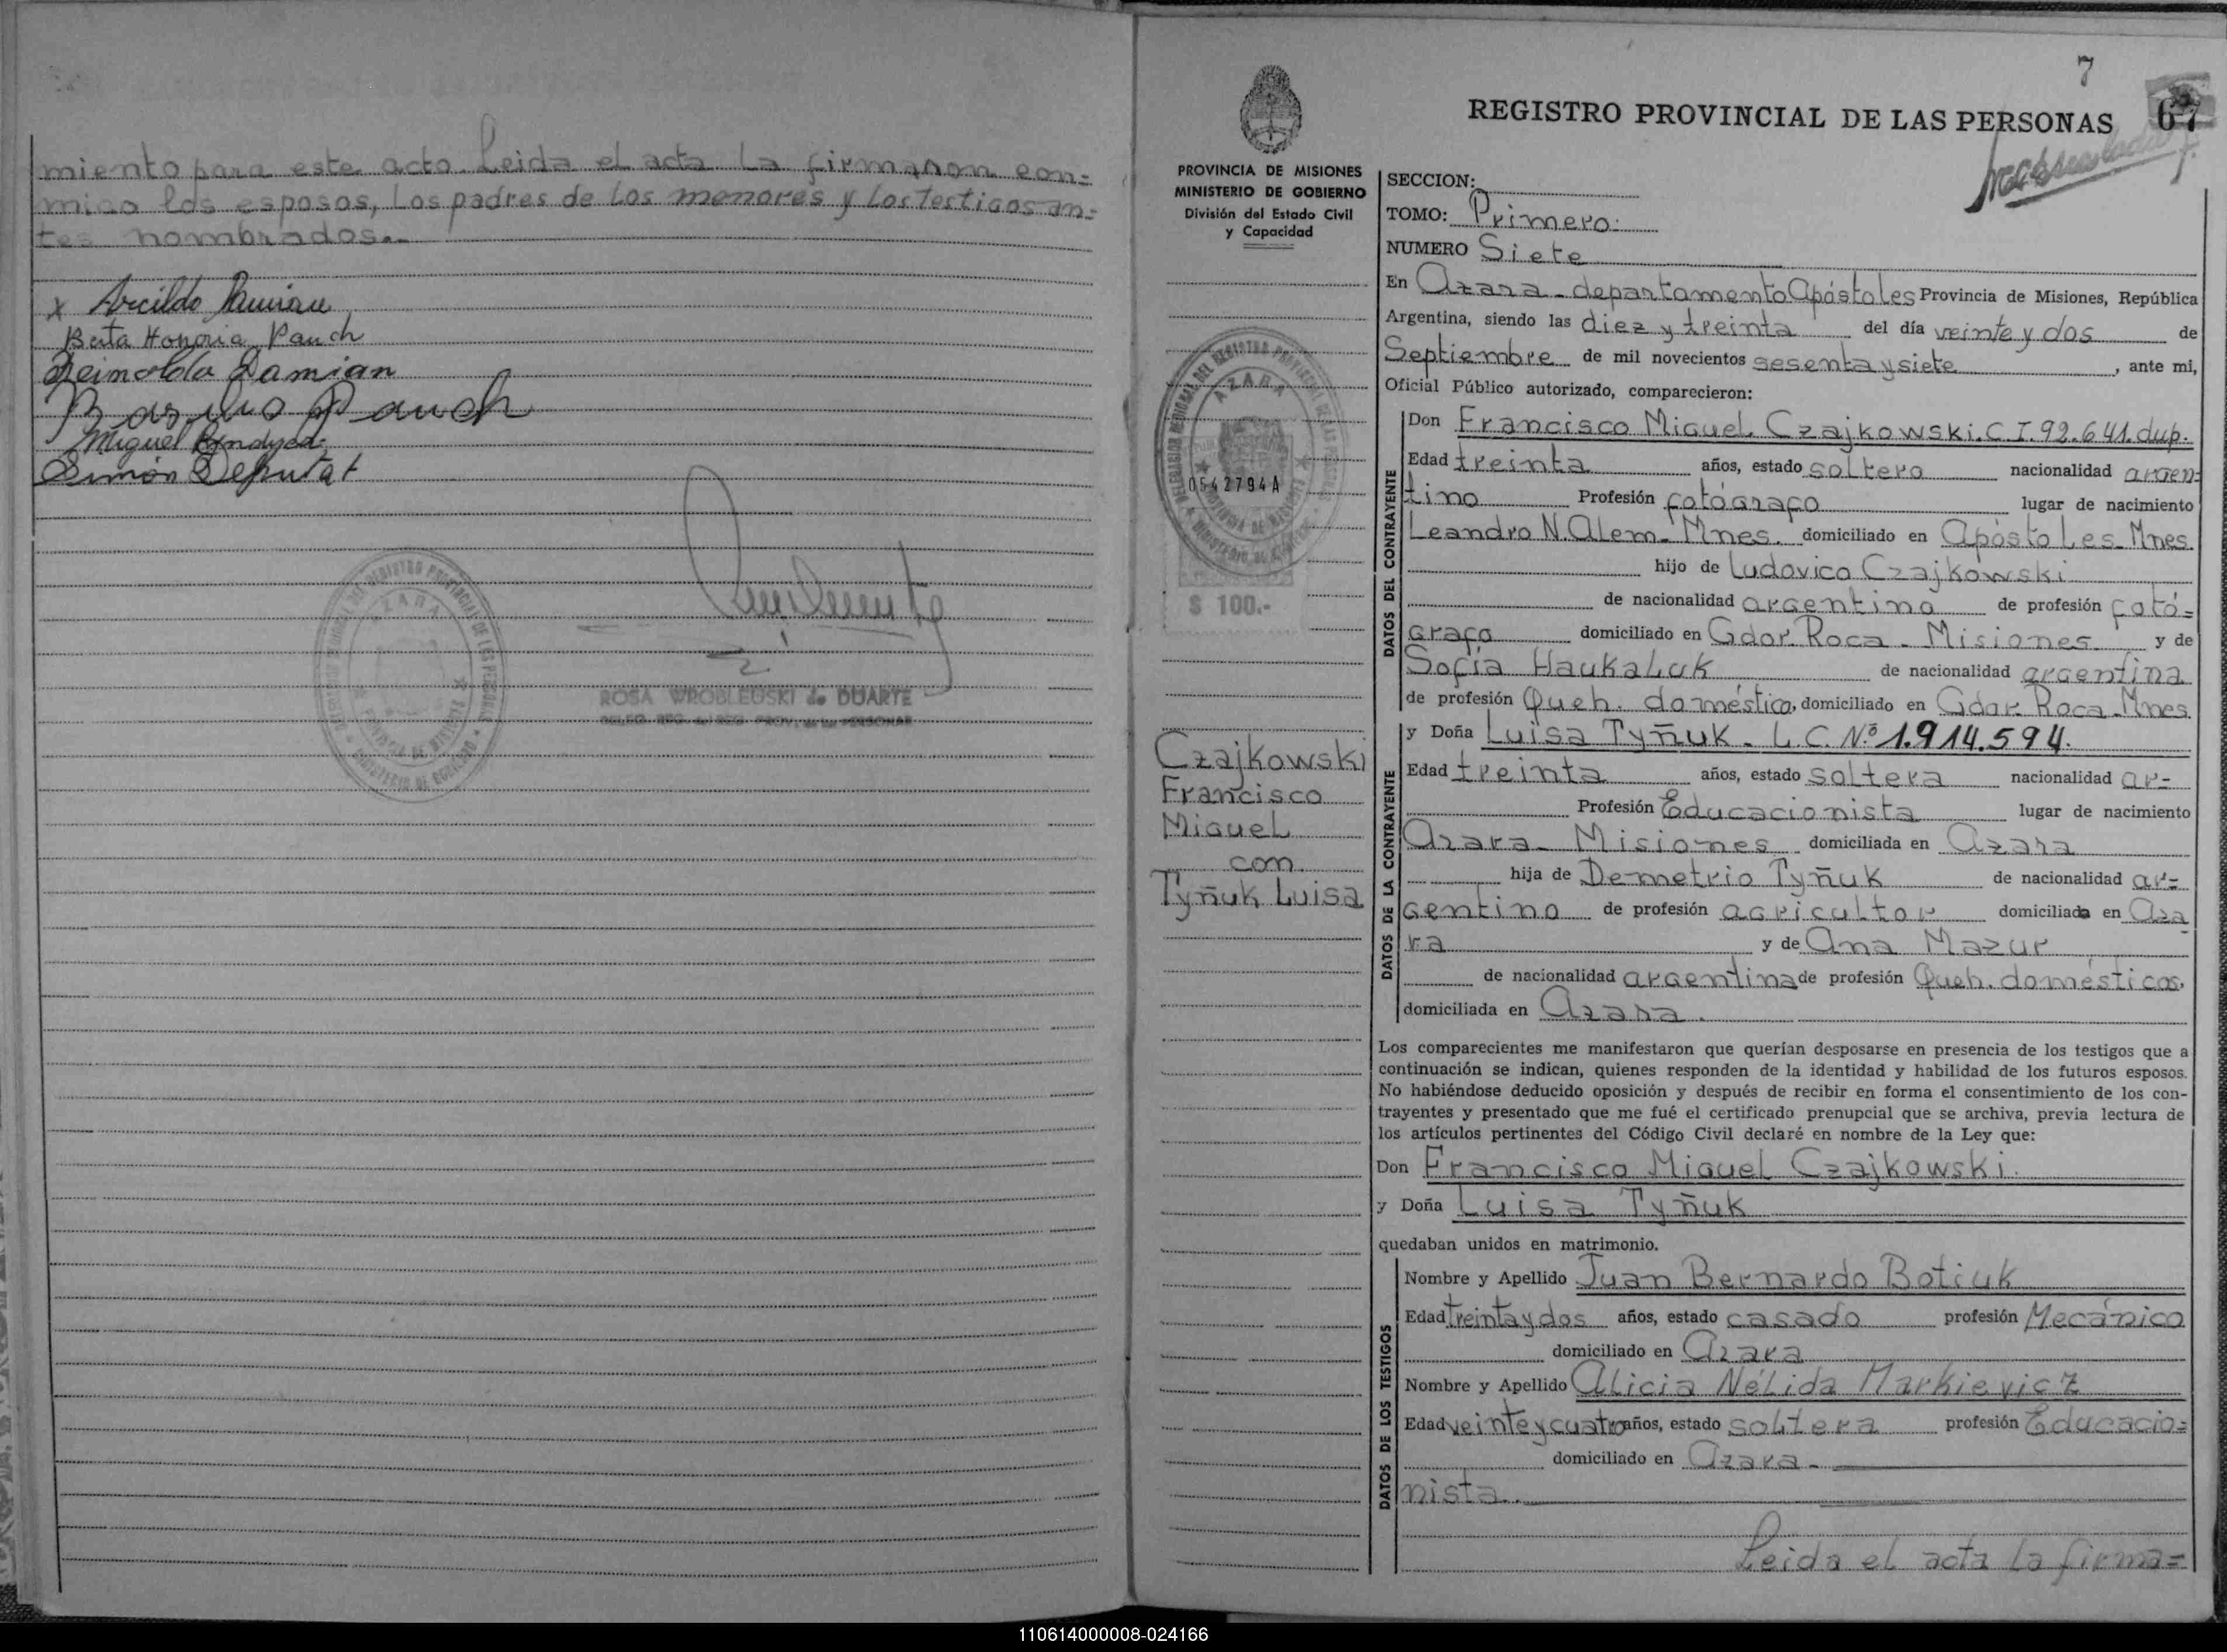 miento para este acto. Leida el acta la firmaron con=
migo los esposos, los padres de los menores y los testigos an=
tes nombrados.-
x Arcildo Damian
Berta Honoria Pauch
Reinoldo Damian
Pauch
Miguel
Simón Deputat
AZARA
ROSA WROBLEUSKI de DUARTE
DELEG. REG. del REG. PROV. de las PERSONAS
7
REGISTRO PROVINCIAL DE LAS PERSONAS 67
PROVINCIA DE MISIONES
MINISTERIO DE GOBIERNO
División del Estado Civil
y Capacidad
AZARA
0542794A
$ 100.-
Czajkowski
Francisco
Miguel
con
Tyñuk Luisa
SECCION:
TOMO: Primero.
NUMERO Siete
En Azara - departamento Apóstoles Provincia de Misiones, República
Argentina, siendo las diez y treinta del día veinte y dos de
Septiembre de mil novecientos sesenta y siete, ante mi,
Oficial Público autorizado, comparecieron:
DATOS DEL CONTRAYENTE
Don Francisco Miguel Czajkowski. C.I. 92.641. dup.
Edad treinta años, estado soltero nacionalidad argen-
tino Profesión fotógrafo lugar de nacimiento
Leandro N. Alem - Mnes. domiciliado en Apóstoles - Mnes.
hijo de Ludovico Czajkowski
de nacionalidad argentina de profesión fotó=
grafo domiciliado en Gdor. Roca - Misiones y de
Sofía Haukaluk de nacionalidad argentina
de profesión Queh. doméstico, domiciliado en Gdor. Roca - Mnes.
DATOS DE LA CONTRAYENTE
y Doña Luisa Tyñuk - L.C. Nº 1.914.594.
Edad treinta años, estado soltera nacionalidad ar-
Profesión Educacionista lugar de nacimiento
Azara - Misiones domiciliada en Azara
hija de Demetrio Tyñuk de nacionalidad ar-
gentino de profesión agricultor domiciliada en Aza
ra y de Ana Mazur
de nacionalidad argentina de profesión Queh. domésticos,
domiciliada en Azara.
Los comparecientes me manifestaron que querían desposarse en presencia de los testigos que a
continuación se indican, quienes responden de la identidad y habilidad de los futuros esposos.
No habiéndose deducido oposición y después de recibir en forma el consentimiento de los con-
trayentes y presentado que me fué el certificado prenupcial que se archiva, previa lectura de
los artículos pertinentes del Código Civil declaré en nombre de la Ley que:
Don Francisco Miguel Czajkowski.
y Doña Luisa Tyñuk
quedaban unidos en matrimonio.
DATOS DE LOS TESTIGOS
Nombre y Apellido Juan Bernardo Botiuk
Edad treinta y dos años, estado casado profesión Mecánico
domiciliado en Azara
Nombre y Apellido Alicia Nélida Markievicz
Edad veinte y cuatro años, estado soltera profesión Educacio=
domiciliado en Azara -
nista.
Leida el acta la firma=
110614000008-024166